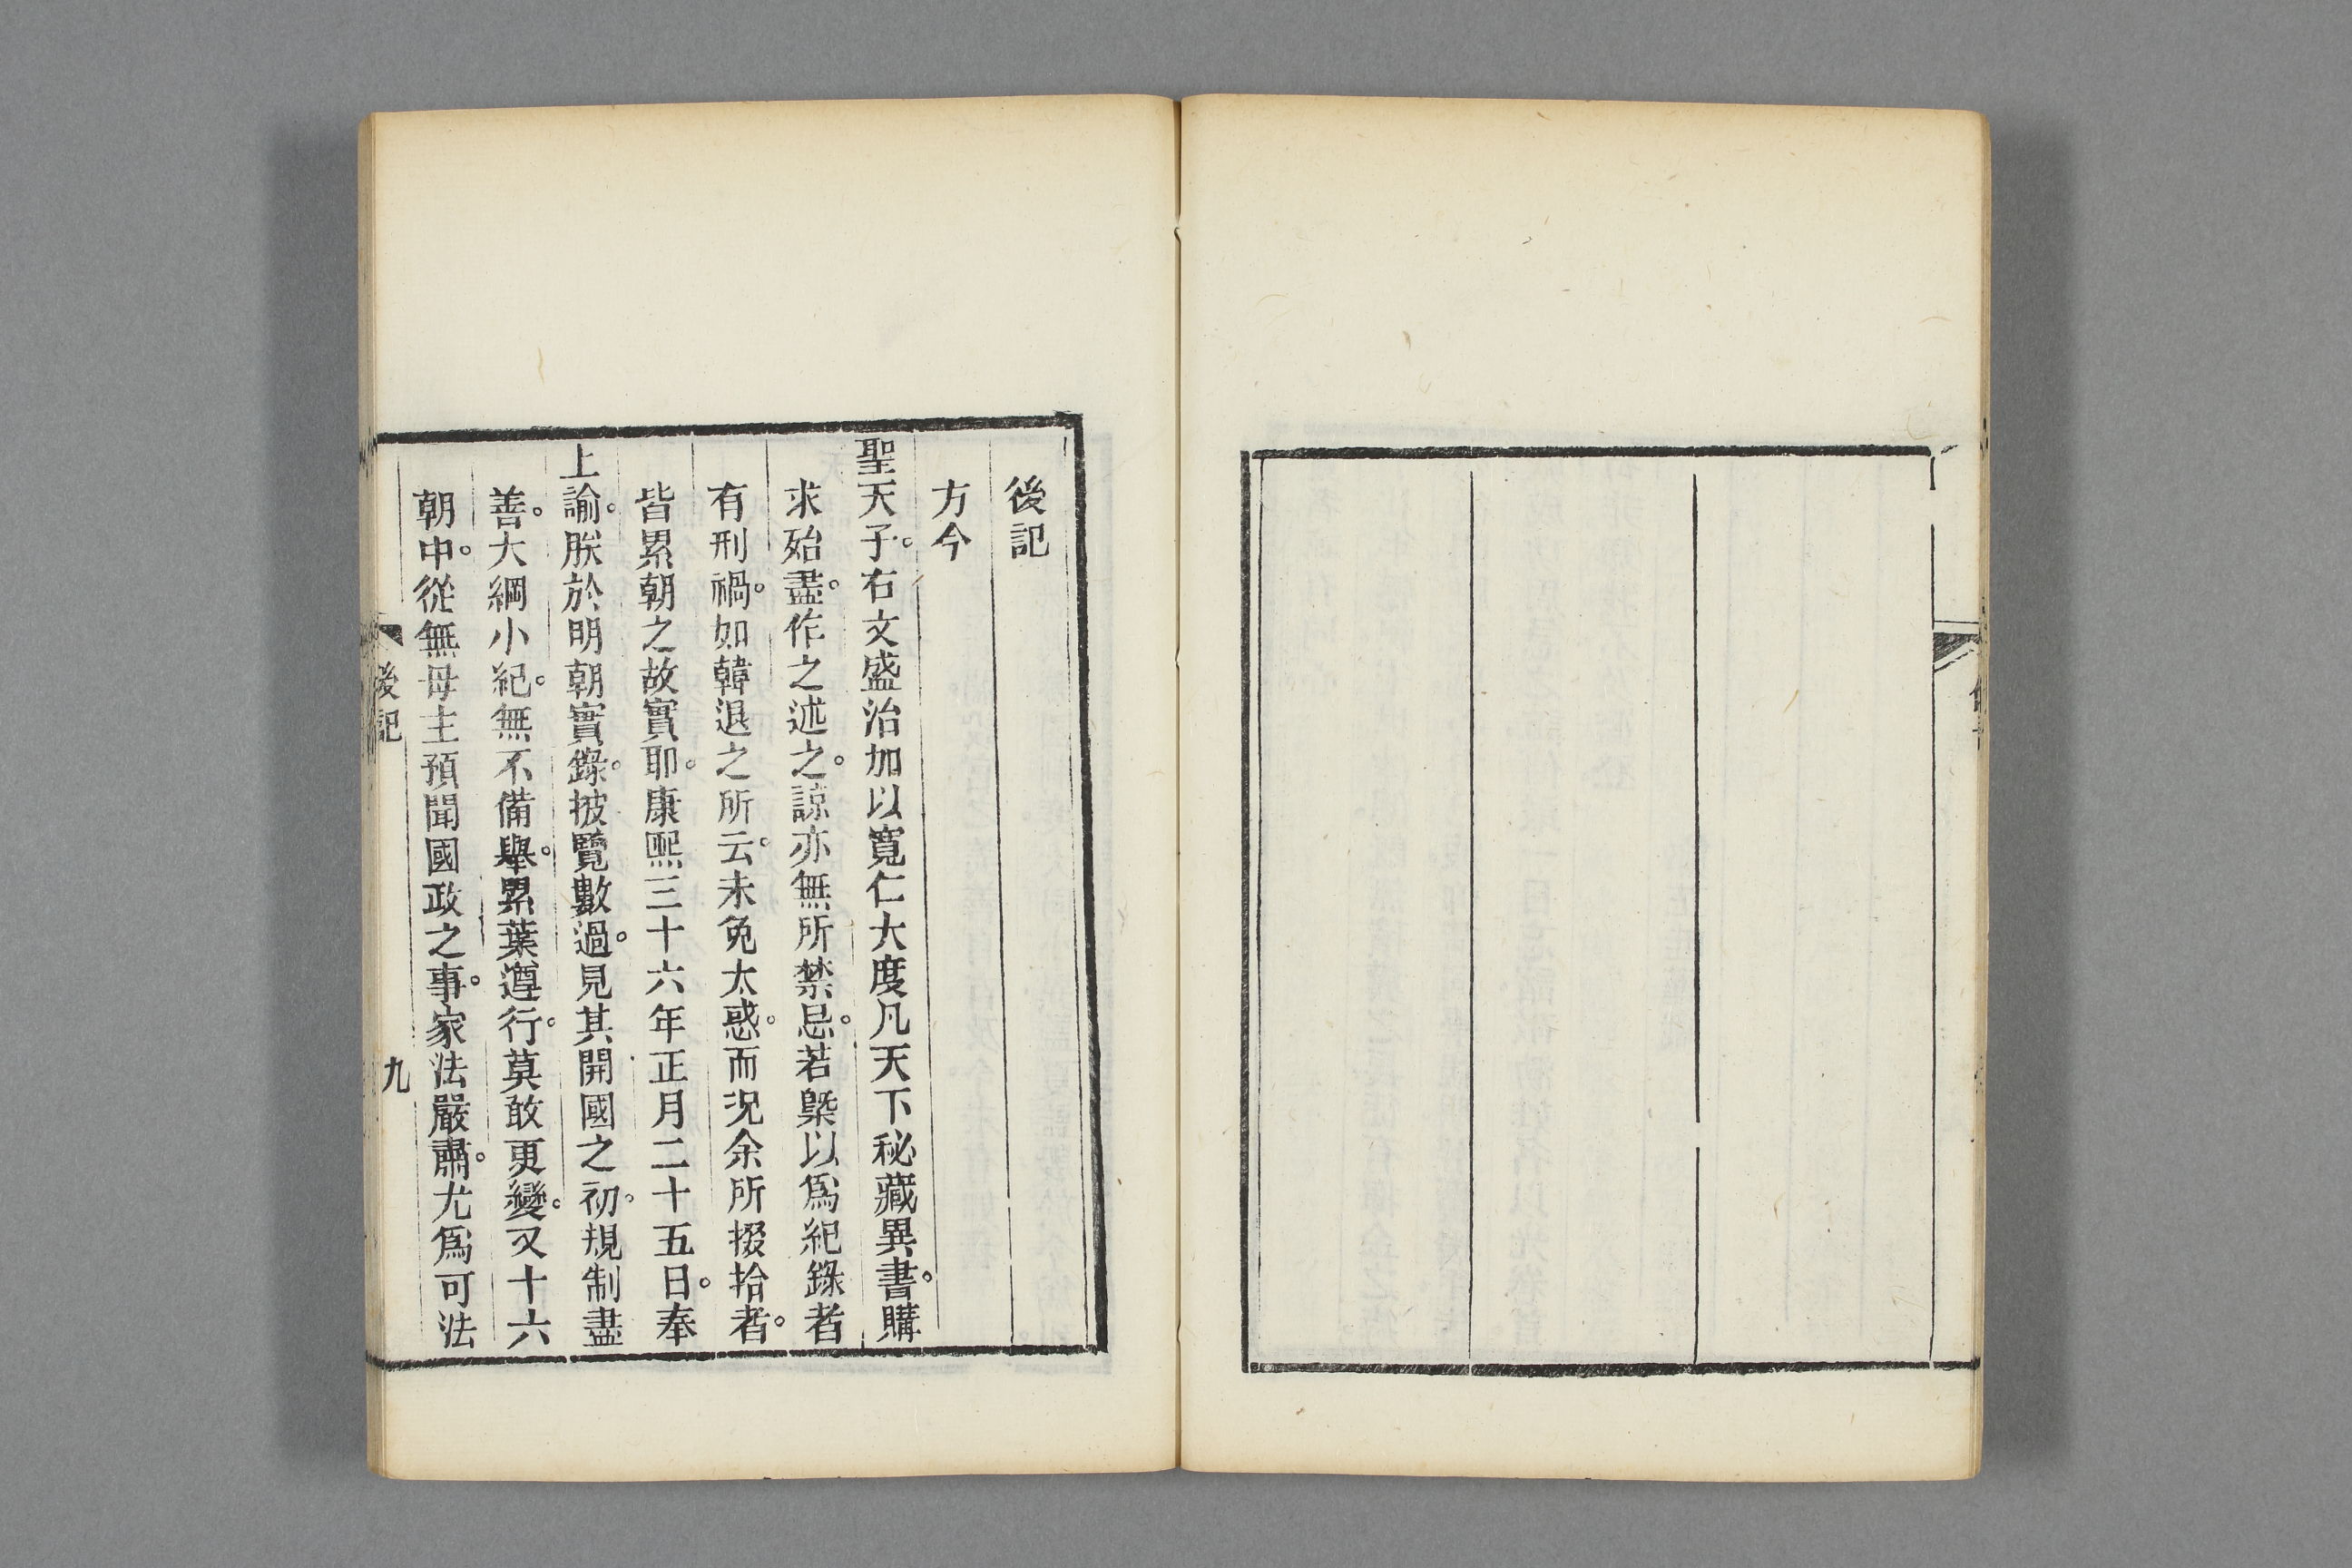 後記
方今
聖天子。右文盛治加以寬仁大度凡天下秘藏異書。購
求殆盡。作之述之。諒亦無所禁忌。若槩以爲紀錄者
有刑禍。如韓退之所云。未免太惑。而況余所掇拾者。
皆累朝之故實耶。康熙三十六年正月二十五日。奉
上諭。朕於明朝實錄。披覽數過。見其開國之初。規制盡
善。大綱小紀。無不備舉。累葉遵行。莫敢更變。又十六
朝中。從無母主預聞國政之事。家法嚴肅。尤爲可法
後記
九